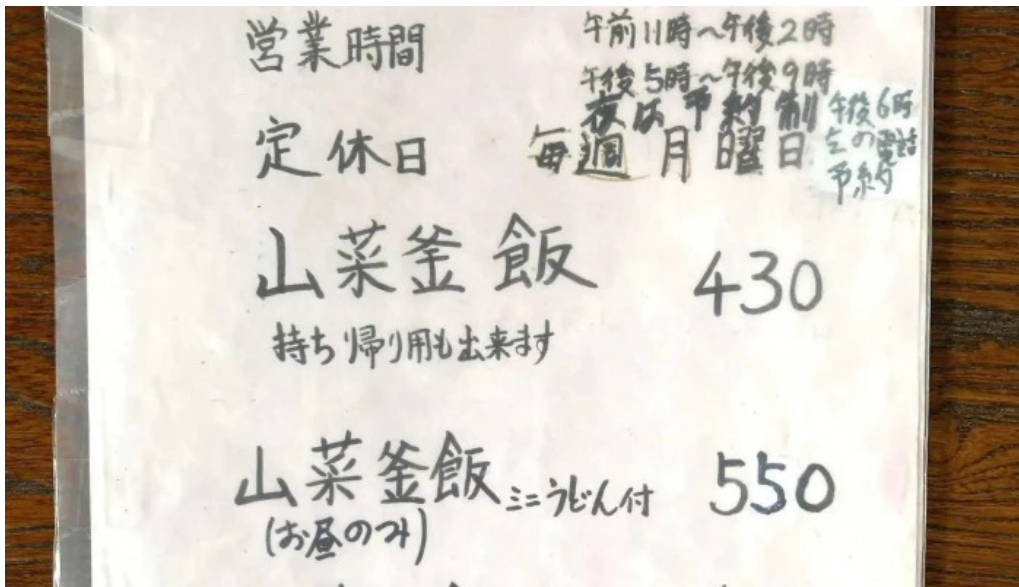 営業時間 午前11時～午後2時
午後5時～午後9時
夜は予約制
午後6時
迄の電話
予約
定休日 毎週月曜日
山菜釜飯 430
持ち帰り用も出来ます
山菜釜飯 ミニうどん付 550
(お昼のみ)